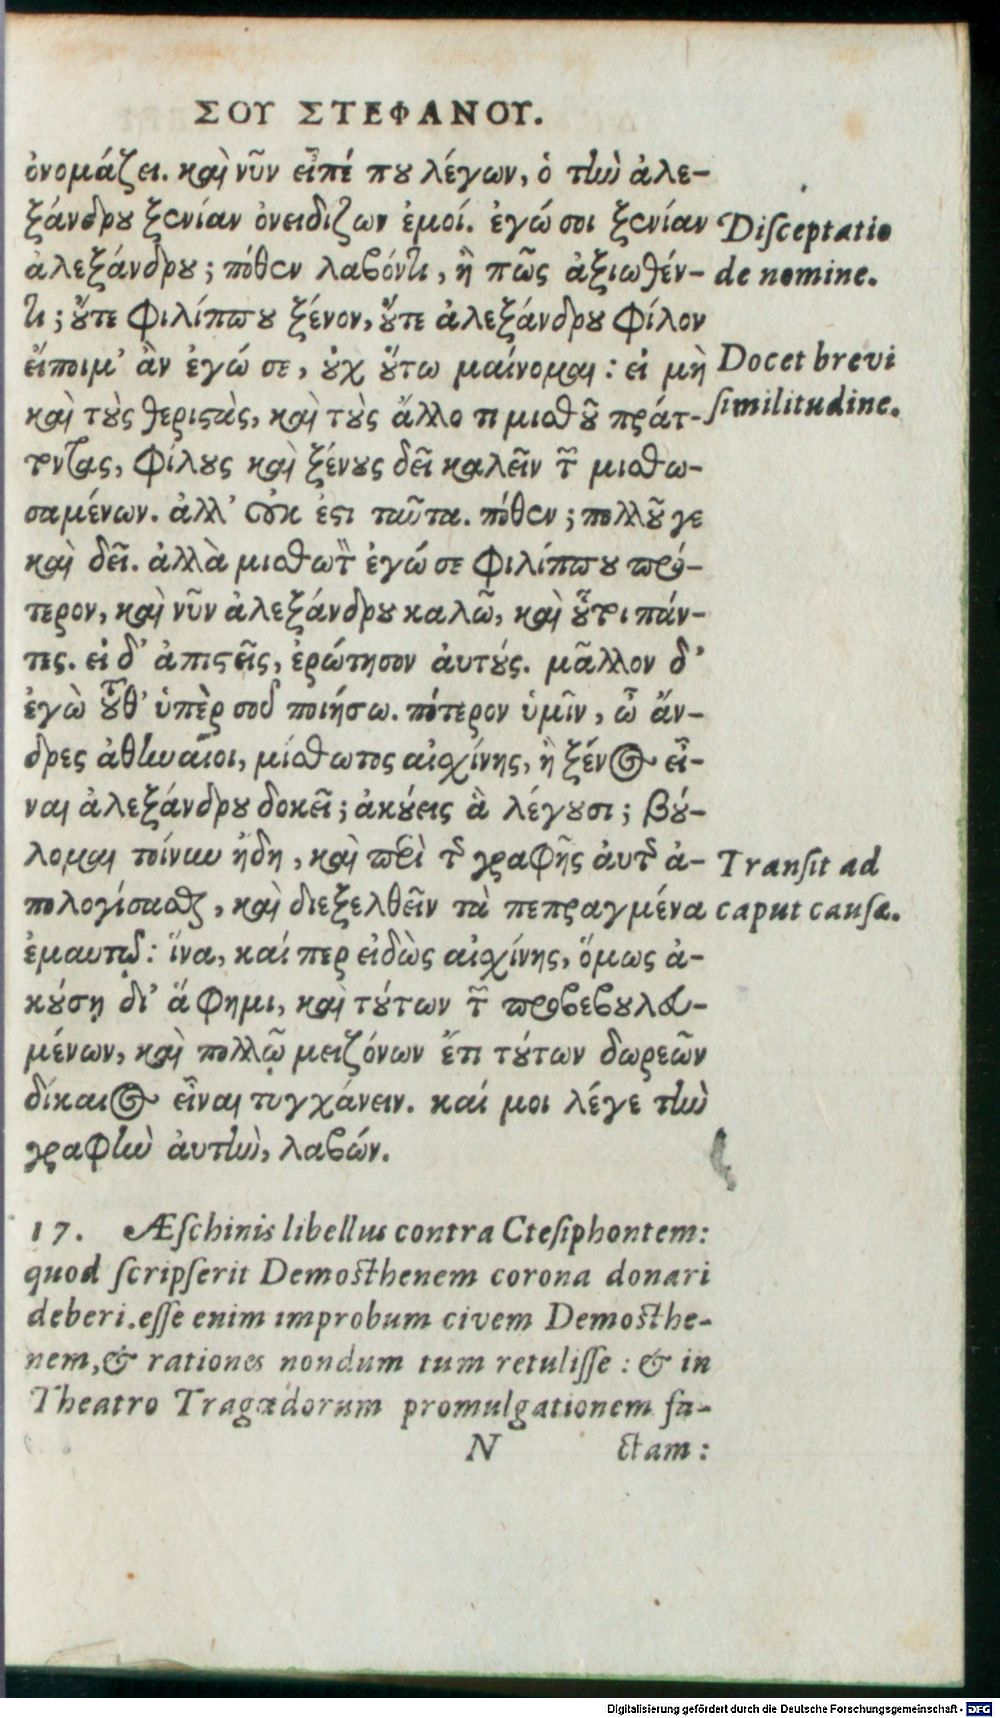 ΣΟΥ ΣΤΕΦΑΝΟΥ.
ὀνομάζει. καὶ νῦν εἶπέ που λέγων, ὁ τὴν ἀλε-
ξάνδρου ξενίαν ὀνειδιζων ἐμοί. ἐγώ σοι ξενίαν
Disceptatio
ἀλεξάνδρου; πόθεν λαβόντι, ἢ πῶς ἀξιωθέν-
de nomine.
τι; οὔτε Φιλίππου ξένον, οὔτε ἀλεξάνδρου φίλον
εἴποιμ' ἂν ἐγώ σε, οὐχ οὕτω μαίνομαι: εἰ μὴ
Docet brevi
καὶ τοὺς θεριστὰς, καὶ τοὺς ἄλλο τι μισθοῦ πράτ-
similitudine.
τοντας, φίλους καὶ ξένους δεῖ καλεῖν τῶν μισθω-
σαμένων. ἀλλ' οὐκ ἔστι ταῦτα. πόθεν; πολλοῦ γε
καὶ δεῖ. ἀλλὰ μισθωτὸν ἐγώ σε Φιλίππου πρό-
τερον, καὶ νῦν ἀλεξάνδρου καλῶ, καὶ οὗτοι πάν-
τες. εἰ δ' ἀπιστεῖς, ἐρώτησον αὐτούς. μᾶλλον δ'
ἐγὼ τοῦθ' ὑπὲρ σοῦ ποιήσω. πότερον ὑμῖν, ὦ ἄν-
δρες ἀθηναῖοι, μίσθωτος αἰσχίνης, ἢ ξένος εἶ-
ναι ἀλεξάνδρου δοκεῖ; ἀκούεις ἃ λέγουσι; βού-
λομαι τοίνυν ἤδη, καὶ περὶ τῆς γραφῆς αὐτῆς ἀ-
Transit ad
πολογίσασθαι, καὶ διεξελθεῖν τὰ πεπραγμένα
caput causæ.
ἐμαυτῷ: ἵνα, καί περ εἰδὼς αἰσχίνης, ὅμως ἀ-
κούσῃ δι' ἅ φημι, καὶ τούτων τῶν προβεβουλευ-
μένων, καὶ πολλῷ μειζόνων ἔτι τούτων δωρεῶν
δίκαιος εἶναι τυγχάνειν. καί μοι λέγε τὴν
γραφὴν αὐτὴν, λαβών.
17. Æschinis libellus contra Ctesiphontem:
quod scripserit Demosthenem corona donari
deberi. esse enim improbum civem Demosthe-
nem, & rationes nondum tum retulisse: & in
Theatro Tragœdorum promulgationem fa-
N ctam:
Digitalisierung gefördert durch die Deutsche Forschungsgemeinschaft - DFG